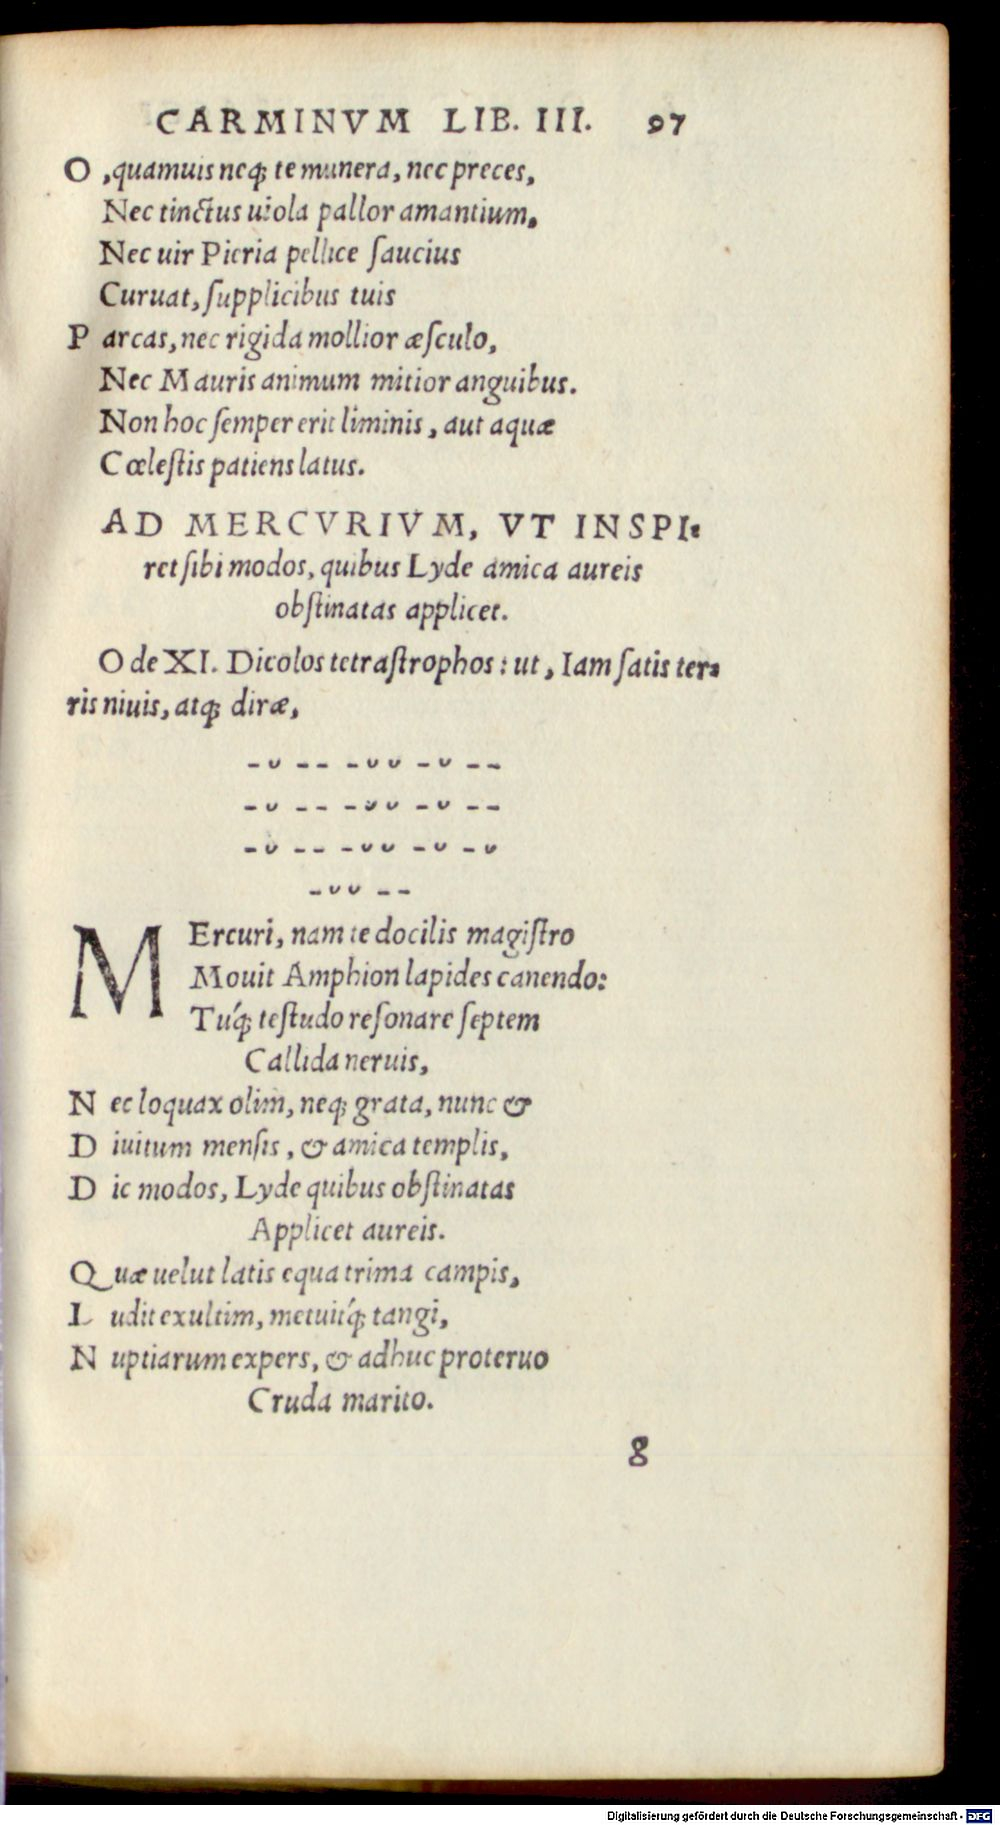 CARMINVM LIB. III. 97
O ,quamuis neq; te munera, nec preces,
Nec tinctus uiola pallor amantium,
Nec uir Pieria pellice ſaucius
Curuat, ſupplicibus tuis
P arcas, nec rigida mollior æſculo,
Nec Mauris animum mitior anguibus.
Non hoc ſemper erit liminis, aut aquæ
Cœleſtis patiens latus.
AD MERCVRIVM, VT INSPI-
ret ſibi modos, quibus Lyde amica aureis
obſtinatas applicet.
Ode XI. Dicolos tetraſtrophos: ut, Iam ſatis ter-
ris niuis, atq; diræ,
– ᴗ – – – ᴗ ᴗ – ᴗ – –
– ᴗ – – – ᴗ ᴗ – ᴗ – –
– ᴗ – – – ᴗ ᴗ – ᴗ – ᴗ
– ᴗ ᴗ – –
MErcuri, nam te docilis magiſtro
Mouit Amphion lapides canendo:
Tuq́; teſtudo reſonare ſeptem
Callida neruis,
N ec loquax olim, neq; grata, nunc &
D iuitum menſis, & amica templis,
D ic modos, Lyde quibus obſtinatas
Applicet aureis.
Q uæ uelut latis equa trima campis,
L udit exultim, metuitq́; tangi,
N uptiarum expers, & adhuc proteruo
Cruda marito.
g
Digitalisierung gefördert durch die Deutsche Forschungsgemeinschaft - DFG